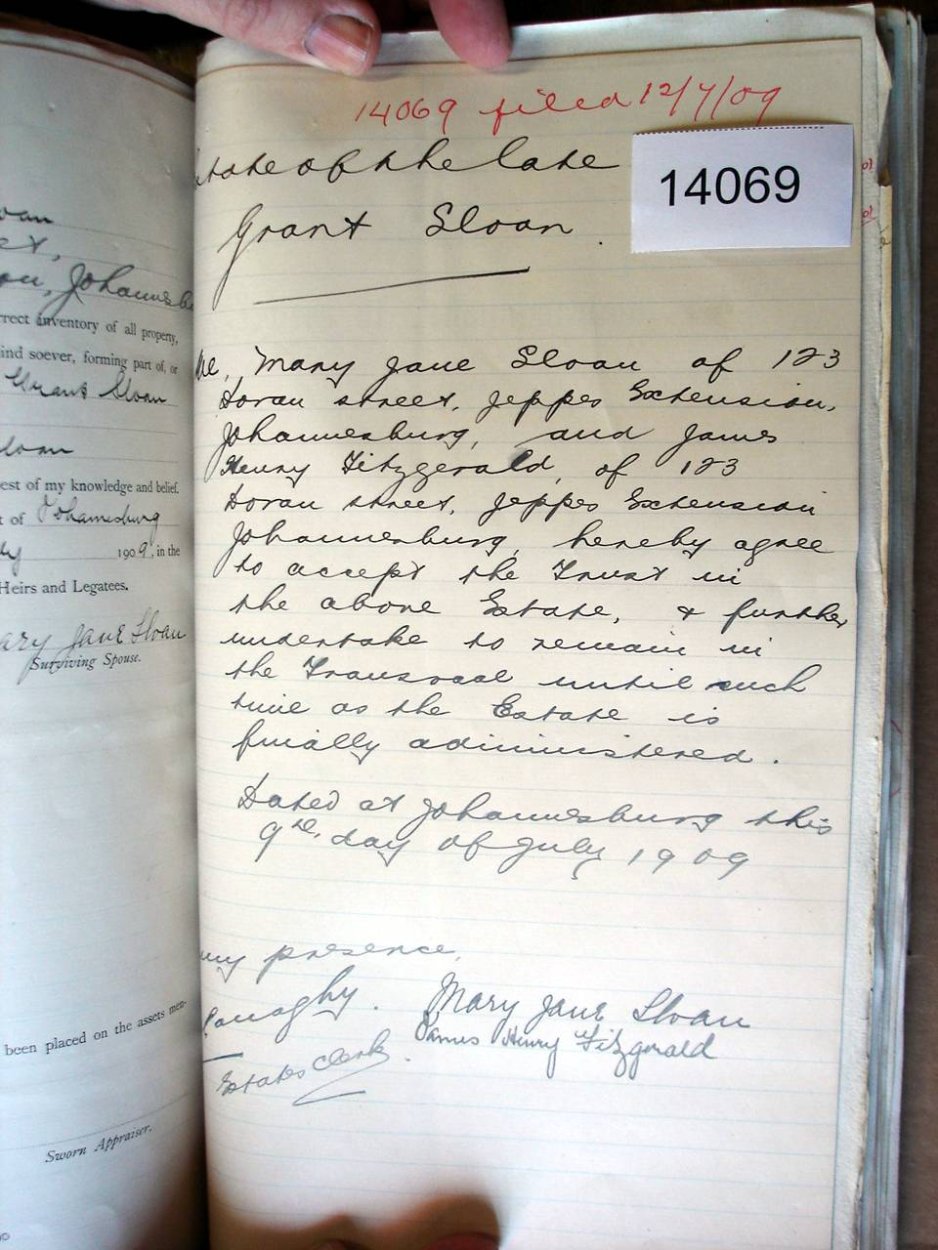 oan
et,
on, Johannesb
rrect inventory of all property,
ind soever, forming part of, or
Grant Sloan
loan
est of my knowledge and belief.
t of Johannesburg
ly 1909, in the
Heirs and Legatees.
ary Jane Sloan
Surviving Spouse.
been placed on the assets men-
Sworn Appraiser.
14069 filed 12/7/09
14069
tate of the late
Grant Sloan.
We, Mary Jane Sloan of 123
Doran street, Jeppes Extension,
Johannesburg, and James
Henry Fitzgerald, of 123
Doran street, Jeppes Extension
Johannesburg, hereby agree
to accept the Trust in
the above Estate, & further
undertake to remain in
the Transvaal until such
time as the Estate is
finally administered.
Dated at Johannesburg this
9th, day of July 1909
my presence,
Mary Jane Sloan
James Henry Fitzgerald
Estates Clerk.